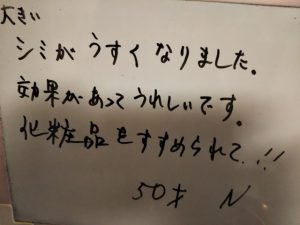 大きい
シミがうすくなりました。
効果があってうれしいです。
化粧品をすすめられて..!!
50才 N